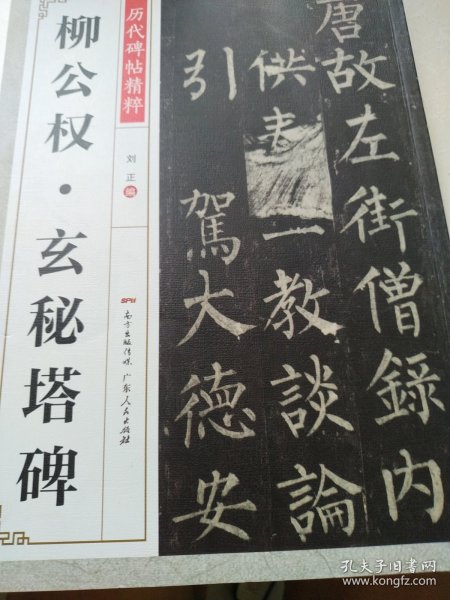 历代碑帖精粹
柳公权·玄秘塔碑
刘正 编
SPM
南方出版传媒
广东人民出版社
唐故左街僧錄内
供奉三教談論
引駕大德安
孔夫子旧书网
www.kongfz.com